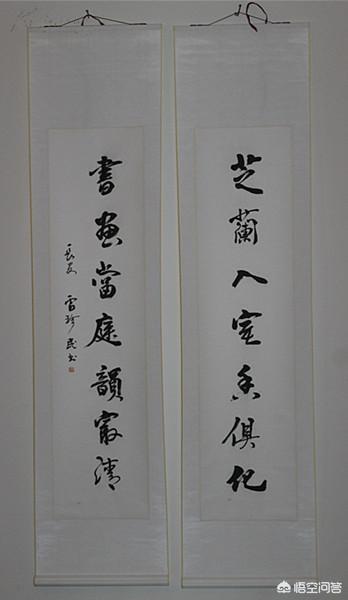 芝蘭入室香俱化
書畫當庭韻最清
長安 雷珍民書
悟空问答